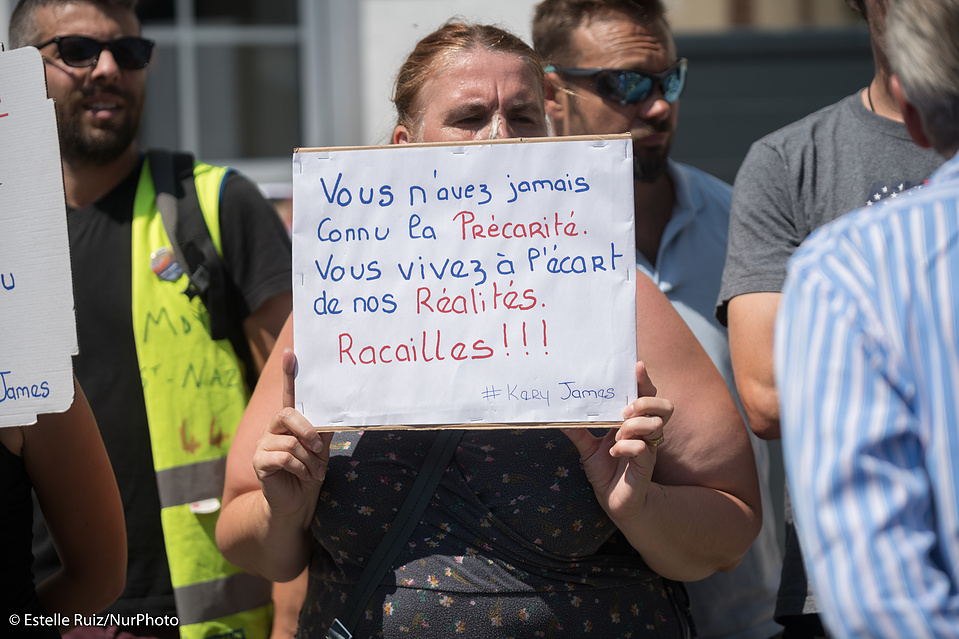 Vous n'avez jamais
Connu la Précarité.
Vous vivez à l'écart
de nos Réalités.
Racailles!!!
#Kery James
James
44
© Estelle Ruiz/NurPhoto